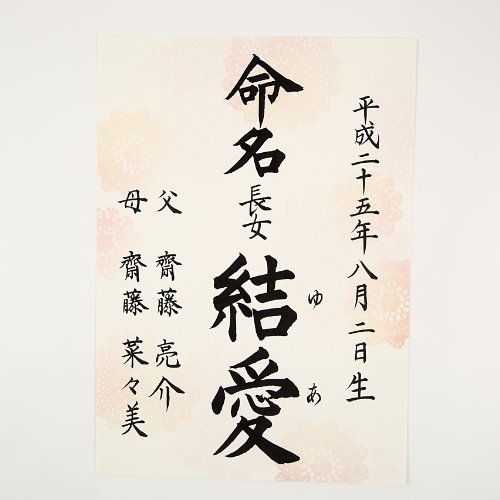 平成二十五年八月二日生
命名 長女 結愛
ゆあ
父 齋藤 亮介
母 齋藤 菜々美